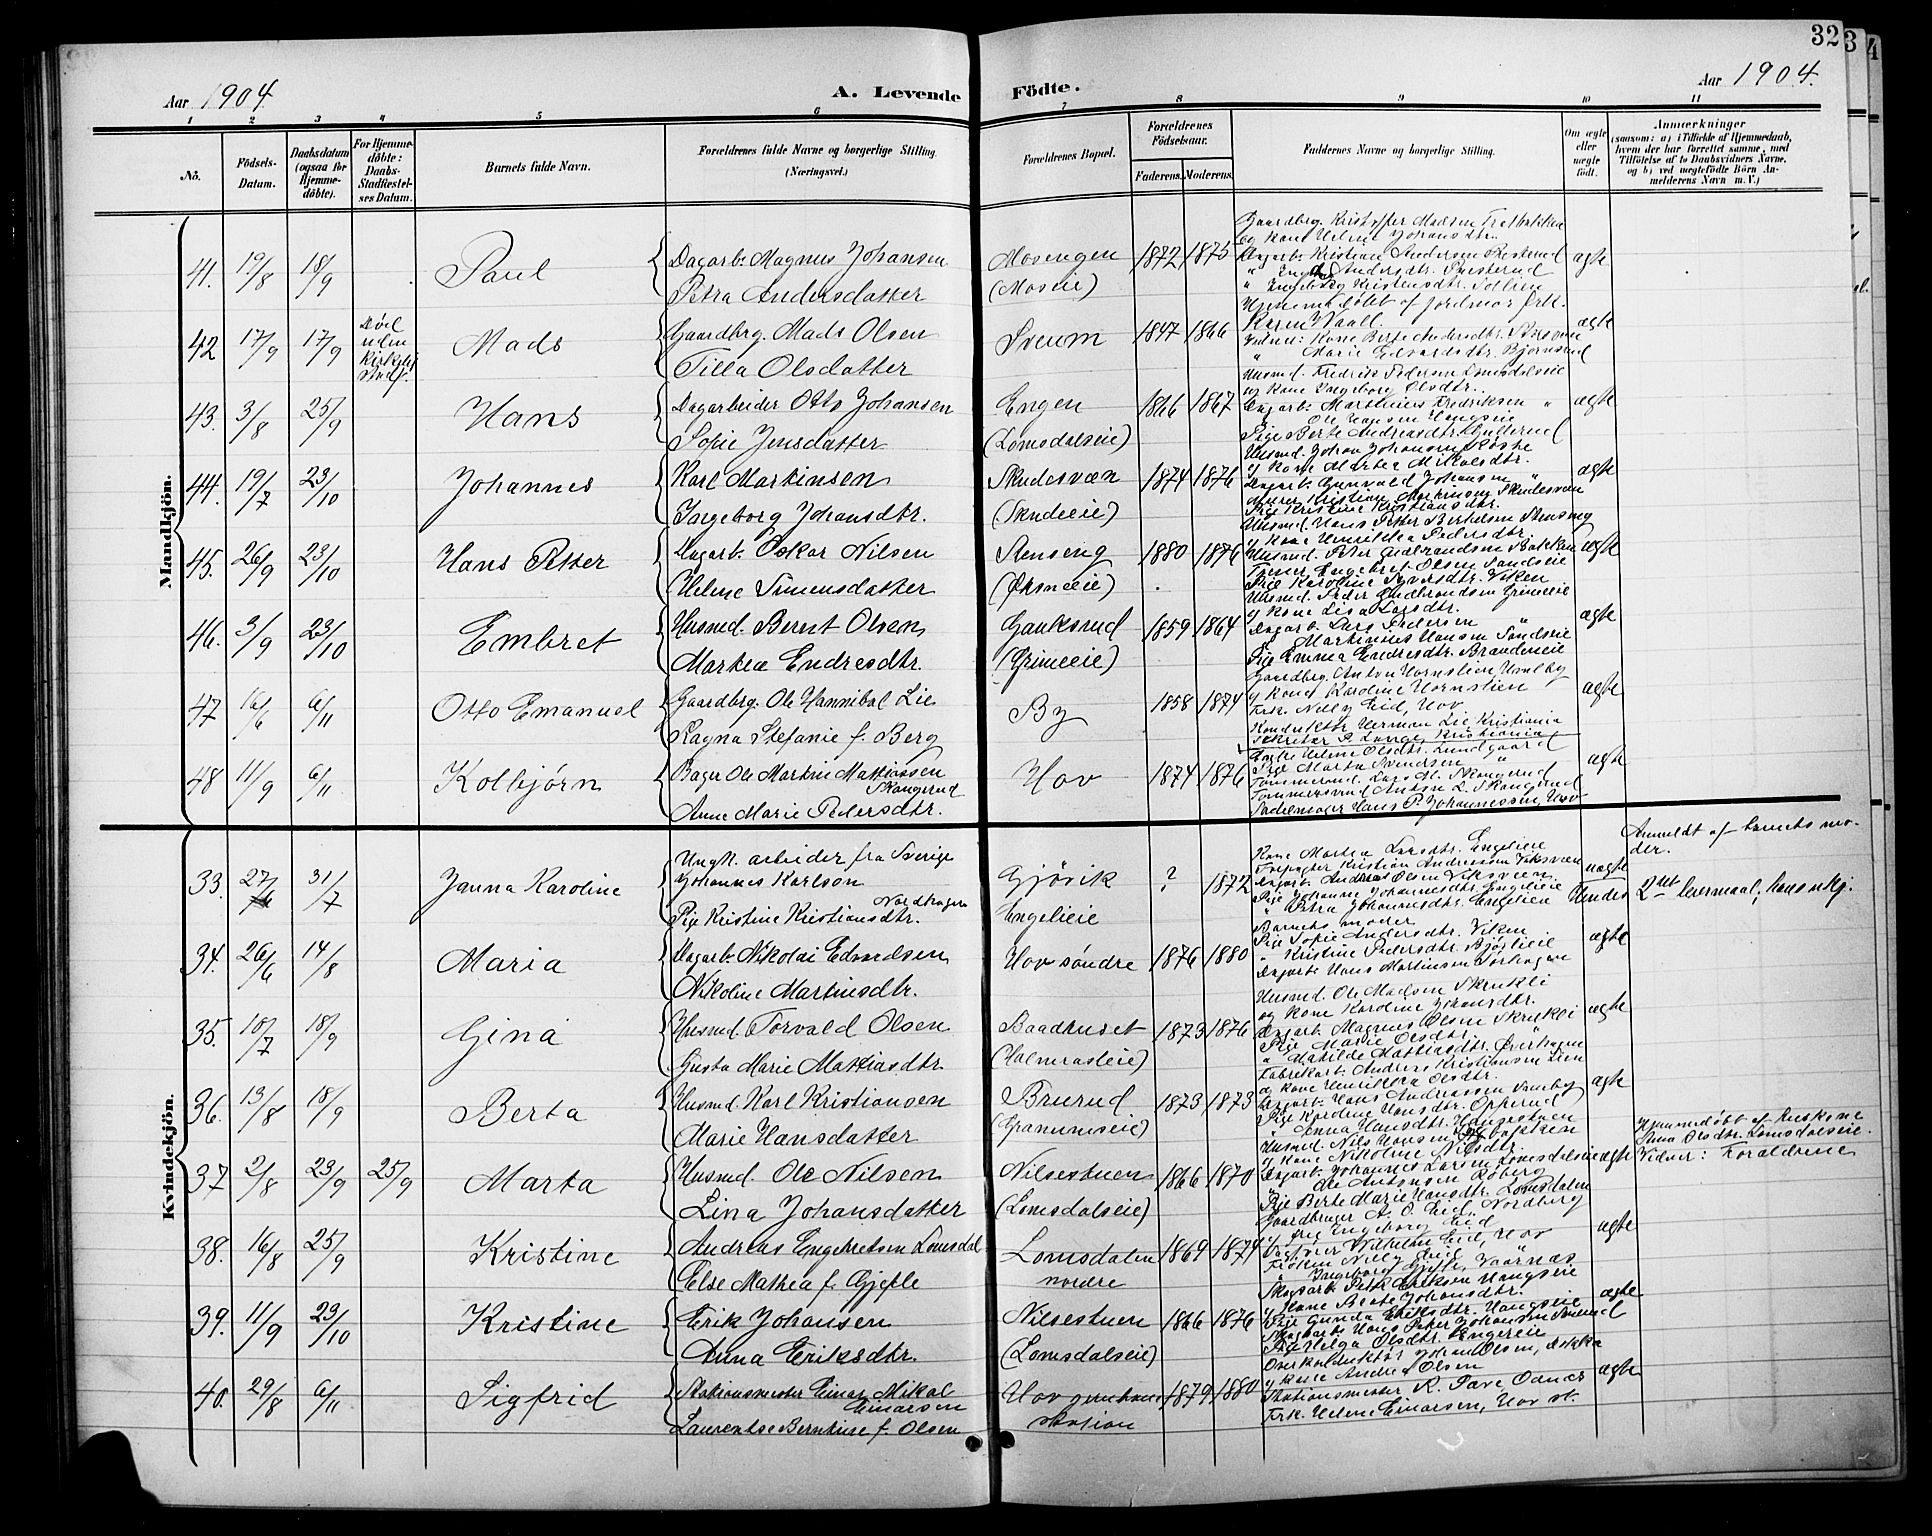 32
3
4
Aar 1904
A. Levende Fødte.
Aar 1904.
1 2 3 4 5 6 7 8 9 10 11
No.
Fødsels-Datum.
Daabsdatum (ogsaa for Hjemme-døbte).
For Hjemme-døbte: Daabs-Stadfæstel-ses Datum.
Barnets fulde Navn.
Forældrenes fulde Navne og borgerlige Stilling.
(Næringsvei.)
Forældrenes Bopæl.
Forældrenes Fødselsaar.
Faderens. Moderens.
Faddernes Navne og borgerlige Stilling.
Om ægte eller uægte født.
Anmærkninger
(saasom: a) i Tilfælde af Hjemmedaab,
hvem der har forrettet samme, med
Tilføielse af to Daabsvidners Navne,
og b) ved uægtefødte Børn An-
melderens Navn m. V.)
Mandkjøn.
41. 19/8 18/9 Paul
Dagarb. Magnus Johansen
Petra Andersdatter
Mosengen
(Moseie)
1872 1875
Gaardbrg. Kristoffer Madsen
og kone Helene Johansdtr.
Dagarb. Kristian Andersen Presterud
Andersdtr. Presterud
" Engeborg Kristensdtr.
ægte
42 17/9 17/9
Død uden Kirkelig
Mads
Gaardbrg. Mads Olsen
Tilla Olsdatter
Sveum
1847 1866
Hjemmedøbt af jordmor frk.
Karen Waall.
Vidner: Kone Berte Andersdtr.
" Marie Edvardsdtr. Bjørnerud
ægte
43. 3/8 25/9 Hans
Dagarbeider Otto Johansen
Sofie Jensdatter
Engen
(Lomsdalseie)
1866 1867
Husmd. Fredrik Pedersen Lomsdalseie
og kone Ingeborg Olsdtr.
Dagarb. Marthinus Fredriksen "
" Ole Hansen Haugseie
Pige Berte Andreasdtr.
ægte
44. 19/7 23/10 Johannes
Karl Martinsen
Ingeborg Johansdtr.
Skudesvæn
(Skudeeie)
1874 1876
Husmd. Johan Johansen
og kone Marthea Mikkelsdtr.
Dagarb. Gunvald Johansen "
Murer Kristian Martinsen Skudesvæn
Pige Kristine Kristiansdtr.
ægte
45. 26/9 23/10 Hans Petter
Dagarb. Oskar Nilsen
Helene Simensdatter
Stenseng
(Øksneeie)
1880 1876
Husmd. Hans Petter Berntsen Stenseng
og kone Henrikka Pedersdtr.
Husmd. Peter Gudbrandsen Bakken
Engebret Olsen Sandseie
Pige Karoline Syversdtr. Viken
ægte
46. 3/9 23/10 Embret
Husmd. Bernt Olsen
Marthea Endresdtr.
Gauksrud
(Grimeeie)
1859 1864
Husmd. Peder Gudbrandsen Grimeeie
og kone Lisa Larsdtr.
Dagarb. Lars Pedersen "
" Martinus Hansen Sandseie
Pige Emma Endresdtr.
ægte
47 16/6 6/11 Otto Emanuel
Gaardbrg. Ole Hannibal Lie
Ragna Stefanie f. Berg
By
1858 1874
Gaardbrg. Anton Hornslien
og kone Karoline Hornslien
Frk. Nelly Eid, Hov
Konduktør Herman Lie Kristiania
Sekretær P. Lange, Kristiania
ægte
48 11/9 6/11 Kolbjørn
Bager Ole Martin Mattiassen
Skangerud
Anne Marie Pedersdtr.
Hov
1874 1876
Enke Helene Olsdtr. Lundgaard
Pige Martha Svendsen "
Tømmermd. Lars M. Skangerud
Tømmersvend Anton L. Skangerud
Hans P. Johannessen, Hov
ægte
Kvindekjøn.
33. 27/6 31/7 Janna Karoline
Ungk. arbeider fra Sverige
Johannes Karlson
Pige Kristine Kristiansdtr.
Nordhagen
Gjøvik
Engelieie
? 1872
Kone Marthea Larsdtr. Engelieie
Forpagter Kristian Andreassen Viksveen
Dagarb. Andreas Olsen Viksveen.
Pige Johanne Johannesdtr. Engelieie
" Petra Johannesdtr. Engelien
Barnets moder
uægte
Anmeldt af barnets mo-
der.
2det leiermaal, hans
34. 26/6 14/8 Maria
Dagarb. Nikolai Edvardsen
Nikoline Martinsdtr.
Hov søndre
1876 1880
Pige Sofie Andersdtr. Viken
" Kristine Pedersdtr.
Dagarb. Hans Martinsen
ægte
35. 10/7 18/9 Gina
Husmd. Torvald Olsen
Gusta Marie Mattiasdtr.
Baadhuset
(Halmrasteie)
1873 1876
Husmd. Ole Madsen Skrukli
og kone Karoline Johansdtr.
Dagarb. Magnus Olsen Skrukli
Pige Marie Olsdtr. "
" Mathilde Mattiasdtr.
ægte
36. 13/8 18/9 Berta
Husmd. Karl Kristiansen
Marie Hansdatter
Bruerud
(Granumseie)
1873 1873
Fabrikarb. Andreas Kristiansen Lien
og kone Henrikka Olsdtr.
Dagarb. Hans Andreassen
Pige Karoline Hansdtr. Opperud
" Anna Hansdtr. Haugestuen
ægte
37. 2/8 23/9 25/9 Marta
Husmd. Ole Nilsen
Lina Johansdatter
Nilsestuen
(Lomsdalseie)
1866 1870
Husmd. Nils Hansen
og kone Nikoline Nilsdtr.
Dagarb. Johannes Larsen Lomsdalseie
" Ole Antonsen Roberg
Pige Berte Marie Hansdtr. Lomsdalen
ægte
Hjemmedøbt af Huskone
Stina Olsdtr. Lomsdalseie.
Vidner: Forældrene
38. 16/8 25/9 Kristine
Andreas Engebretsen Lomsdal
Else Mathea f. Gjefle
Lomsdalen
nordre
1869 1874
Gaardbruger A. O. Eid, Nordberg
og frue Ingeborg Eid
Wilhelm Eid, Hov
Frøken Nelly Eid
" Ingeborg Gjefle, Vaarnæs
ægte
39. 11/9 23/10 Kristine
Erik Johansen
Anna Eriksdtr.
Nilsestuen
(Lomsdalseie)
1866 1876
Skogsarb. Peter Eriksen Haugseie
og kone Beate Johansdtr.
Pige Gunda Eriksdtr. Haugseie
Skogsarb. Hans Peter Johansen
Pige Helga Olsdtr. Engereie
ægte
40. 29/8 6/11 Sigfrid
Stationsmester Einar Mikal
Einarsen
Laurentse Bernhine f. Olsen
Hov jernbane
station
1879 1880
Overkonduktør Johan Olsen,
og kone Andrea Olsen
Stationsmester R.
Frk. Helene Einarsen, Hov st.
ægte